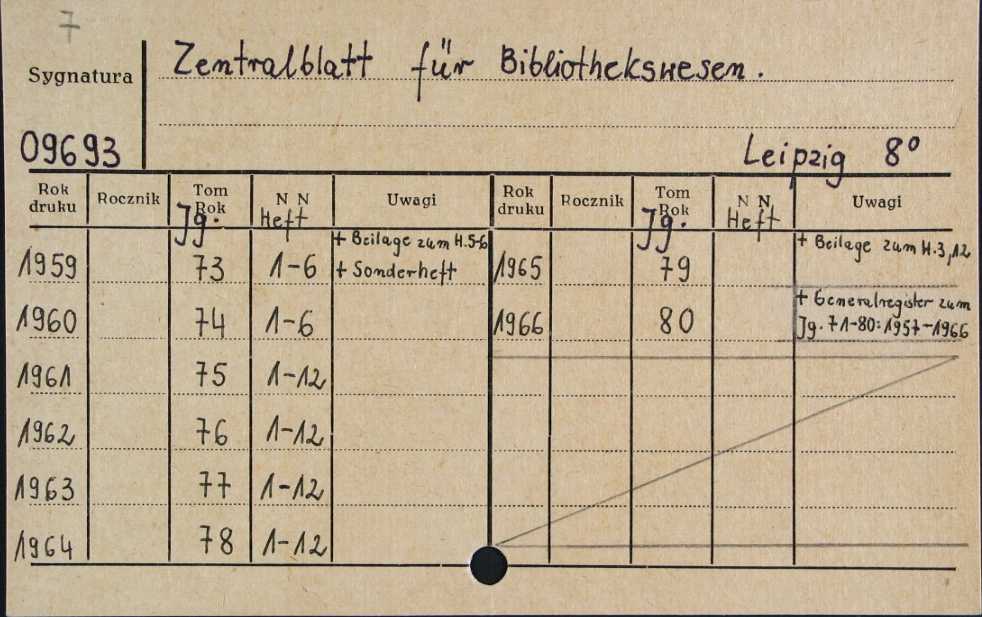 7
Sygnatura Zentralblatt für Bibliothekswesen.
09693 Leipzig 8°
Rok druku Rocznik Tom Rok Jg. N N Heft Uwagi Rok druku Rocznik Tom Rok Jg. N N Heft Uwagi
1959 73 1-6 + Beilage zum H.5-6 + Sonderheft 1965 79 + Beilage zum H.3,12
1960 74 1-6 1966 80 + Generalregister zum Jg. 71-80: 1957-1966
1961 75 1-12
1962 76 1-12
1963 77 1-12
1964 78 1-12